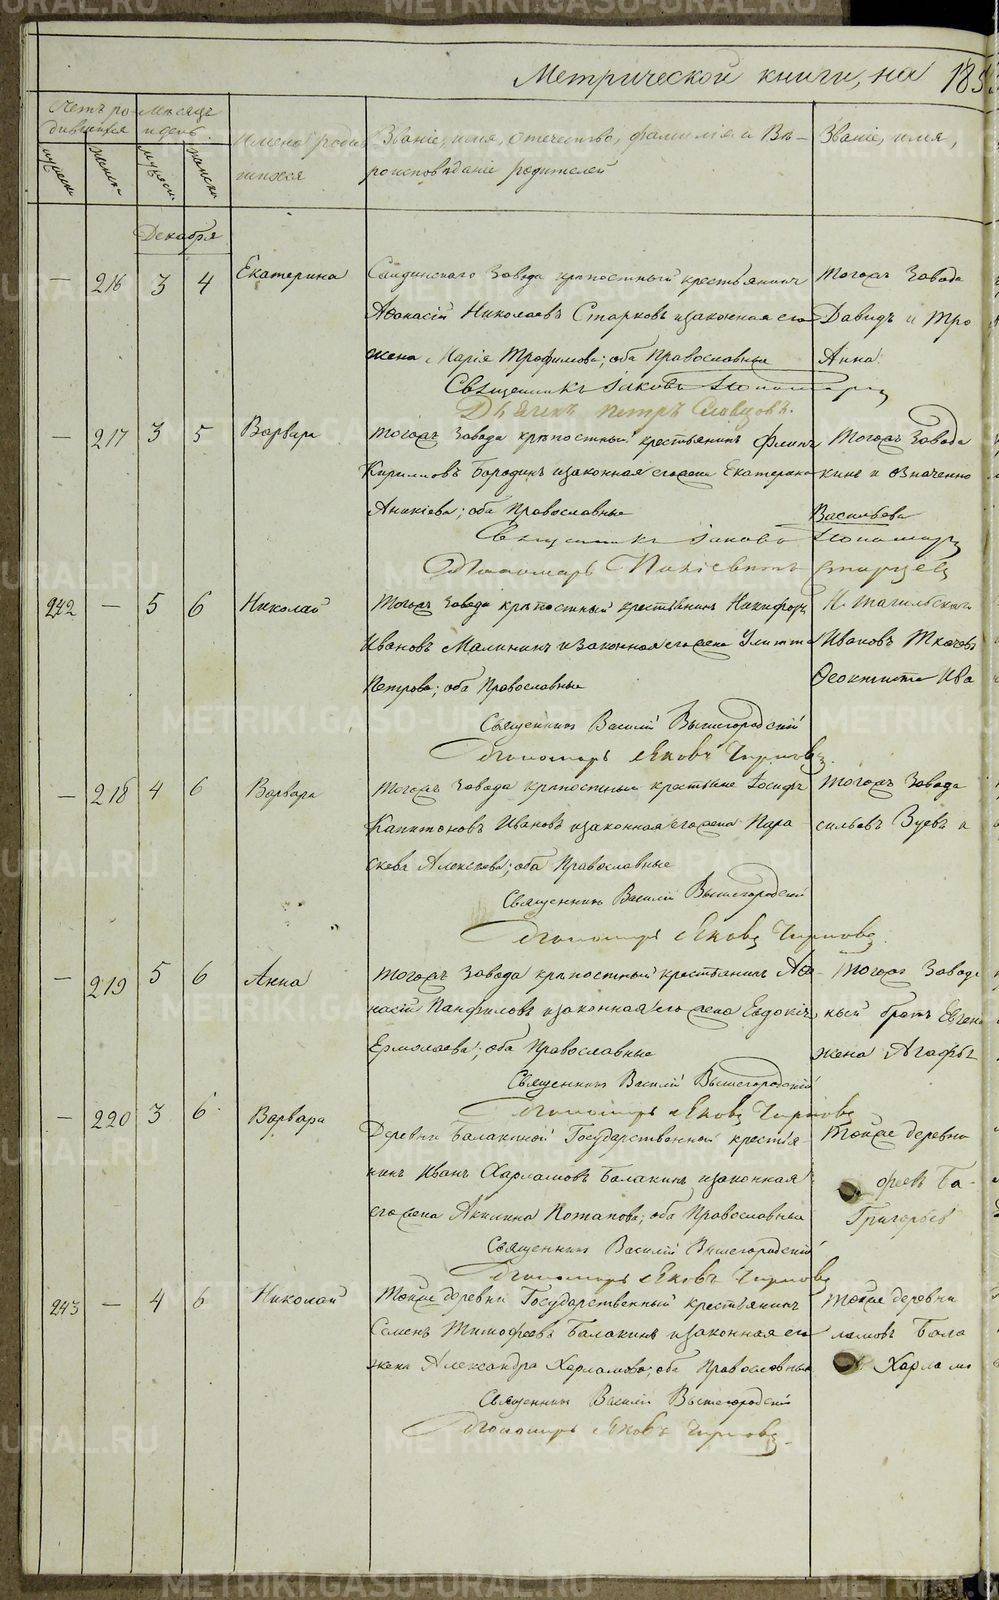 Метрической книги, на 185
Счетъ ро- Мѣсяцъ
дившихся и день.
Имена родив-
шихся
Званіе, имя, отечество, фамилія и Вѣ-
роисповѣданіе родителей
Званіе, имя,
мужеск.
женск.
Декабря
— 216 3 4 Екатерина
завода крѣпостный крестьянинъ
Афанасій Николаевъ Старковъ и законная его
жена Марія Трофимова; оба Православные
Тогожъ Завода
Давидъ и Тро
Анна
Священникъ Іаковъ Пономаревъ
Дьячекъ Петръ Словцовъ.
— 217 3 5 Варвара
Тогожъ Завода крѣпостный крестьянинъ Филипъ
Кириловъ Бородинъ и законная его жена Екатерина
Аникіева; оба Православные
Тогожъ Завода
кинъ и означенно
Васильева
Священникъ Іаковъ Пономаревъ
Пономарь Старцевъ
242 — 5 6 Николай
Тогожъ Завода крѣпостный крестьянинъ Никифоръ
Ивановъ Малининъ и законная его жена Улитта
Петрова; оба Православные
Н. Тагильскаго
Ивановъ Ткачевъ
Феоктиста Ива
Священникъ Василій Вышегородскій
Пономарь Яковъ Чирковъ
— 218 4 6 Варвара
Тогожъ Завода крѣпостные крестьяне Іосифъ
Капитоновъ Ивановъ и законная его жена Пара-
скева Алексѣева; оба Православные
Тогожъ Завода
сильевъ Зуевъ и
Священникъ Василій Вышегородскій
Пономарь Яковъ Чирковъ
— 219 5 6 Анна
Тогожъ Завода крѣпостный крестьянинъ Афа-
насій Панфиловъ и законная его жена Евдокія
Ермолаева; оба Православные
Тогожъ Завода
ный братъ Евген
жена Агафья
Священникъ Василій Вышегородскій
Пономарь Яковъ Чирковъ
— 220 3 6 Варвара
Деревни Балакиной Государственный крестья-
нинъ Иванъ Харламовъ Балакинъ и законная
его жена Акилина Потапова; оба Православные
Тойже деревни
офеевъ Ба-
Григорьев
Священникъ Василій Вышегородскій
Пономарь Яковъ Чирковъ
243 — 4 6 Николай
Тойже деревни Государственный крестьянинъ
Семенъ Тимофеевъ Балакинъ и законная его
жена Александра Харламова; оба Православные
Тойже деревни
ламовъ Бала
Харламо
Священникъ Василій Вышегородскій
Пономарь Яковъ Чирковъ
METRIKI.GASO-URAL.RU